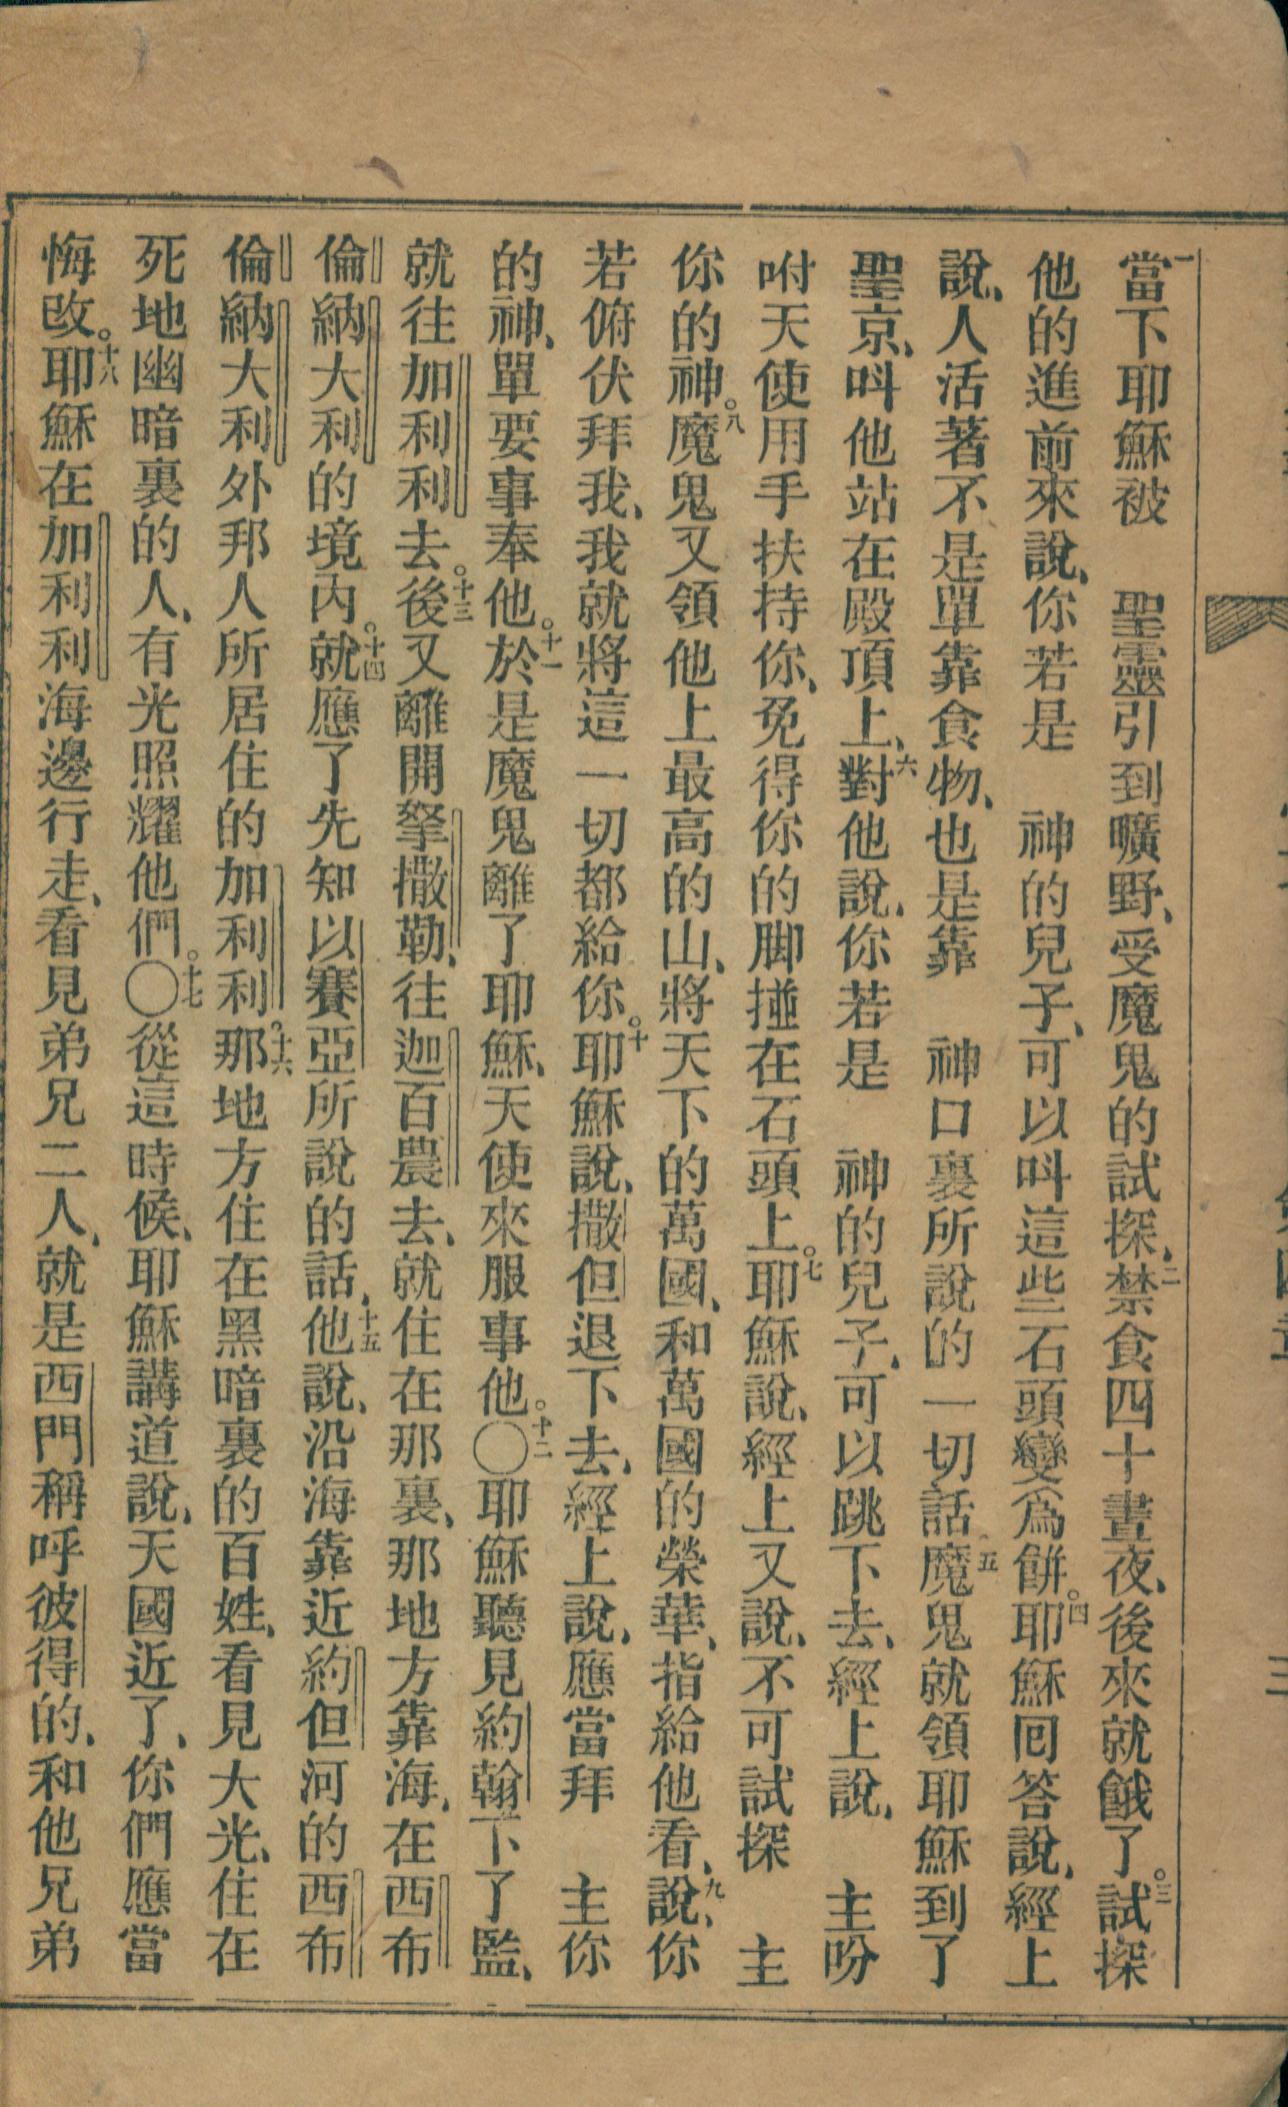 一當下耶穌被　聖靈引到曠野、受魔鬼的試探、二禁食四十晝夜、後來就餓了。三試探
他的進前來說、你若是　神的兒子、可以呌這些石頭變爲餅。四耶穌囘答說、經上
說、人活著不是單靠食物、也是靠　神口裏所說的一切話。五魔鬼就領耶穌到了
聖京、呌他站在殿頂上、六對他說、你若是　神的兒子、可以跳下去、經上說、　主吩
咐天使用手扶持你、免得你的脚掽在石頭上。七耶穌說、經上又說、不可試探　主
你的神。八魔鬼又領他上最高的山、將天下的萬國、和萬國的榮華、指給他看、九說、你
若俯伏拜我、我就將這一切都給你。十耶穌說、撒但退下去、經上說、應當拜　主你
的神、單要事奉他。十一於是魔鬼離了耶穌、天使來服事他。十二〇耶穌聽見約翰下了監、
就往加利利去。十三後又離開拏撒勒、往迦百農去、就住在那裏、那地方靠海、在西布
倫納大利的境內。十四就應了先知以賽亞所說的話、十五他說、沿海靠近約但河的西布
倫納大利外邦人所居住的加利利。十六那地方住在黑暗裏的百姓、看見大光、住在
死地幽暗裏的人、有光照耀他們。十七〇從這時候、耶穌講道說、天國近了、你們應當
悔改。十八耶穌在加利利海邊行走、看見弟兄二人、就是西門稱呼彼得的、和他兄弟